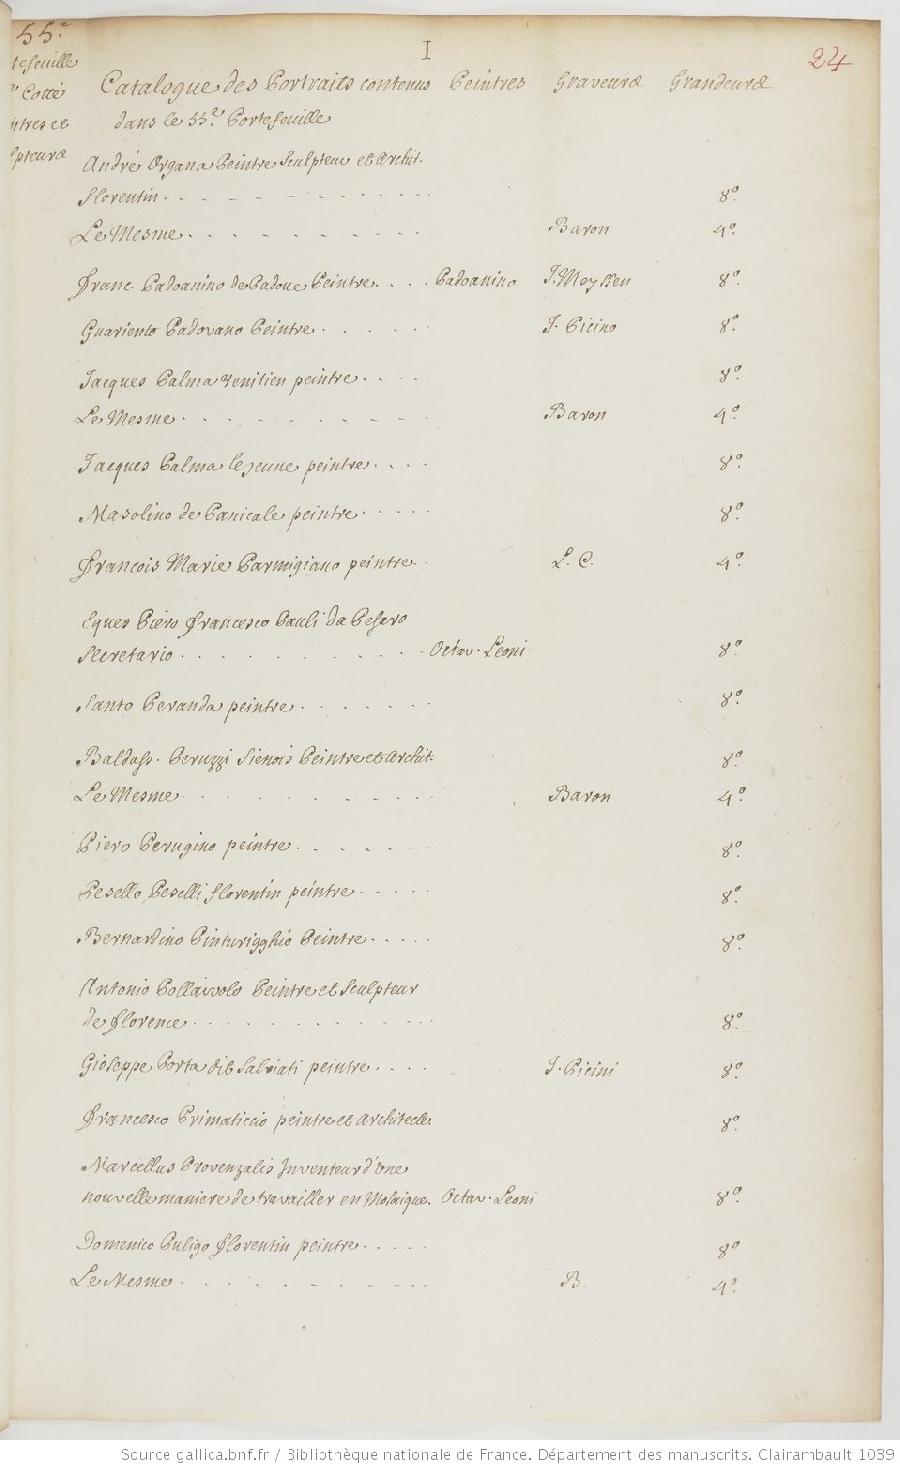 I
24
55e
tefeuille
Cotté
ntres et
lpteurs
Catalogue des Portraits contenus Peintres Graveurs Grandeurs
dans le 55e Portefeuille
André Organa Peintre Sculpteur et Archit.
Florentin . . . . . . . . . . 8º
Le Mesme . . . . . . . . Baron 4º.
Franc. Padoanino de Padoue Peintre . . . . Padoanino J. Meyssen 8º.
Guariento Padovano Peintre . . . . . J. Picino 8º.
Jacques Palma Venitien peintre . . . . 8º.
Le Mesme . . . . . . . . . Baron 4º
Jacques Palma le jeune peintre . . . . 8º.
Masolino de Panicale peintre . . . . . 8º.
François Marie Parmigiano peintre . . L. C. 4º.
Eques Piero Francesco Pauli da Pesaro
Secretario . . . . . . . . . Octav. Leoni 8º.
Santo Peranda peintre . . . . . . . 8º.
Baldass. Peruzzi Sienois Peintre et Archit. 8º.
Le Mesme . . . . . . . . Baron 4º.
Piero Perugino peintre . . . . . . 8º.
Pesello Peselli florentin peintre . . . . . 8º.
Bernardino Pinturigghio Peintre . . . . . 8º.
Antonio Pollaivolo Peintre et Sculpteur
de Florence . . . . . . . . . . 8º.
Gioseppe Porta dit Salviati peintre . . . . J. Picini 8º.
Francesco Primaticcio peintre et Architecte. 8º.
Marcellus Provenzalis Inventeur d'une
nouvelle maniere de travailler en Mosaique. Octav. Leoni 8º.
Domenico Puligo Florentin peintre . . . . . 8º
Le Mesme . . . . . . . . . B. 4º.
Source gallica.bnf.fr / Bibliothèque nationale de France. Département des manuscrits. Clairambault 1039